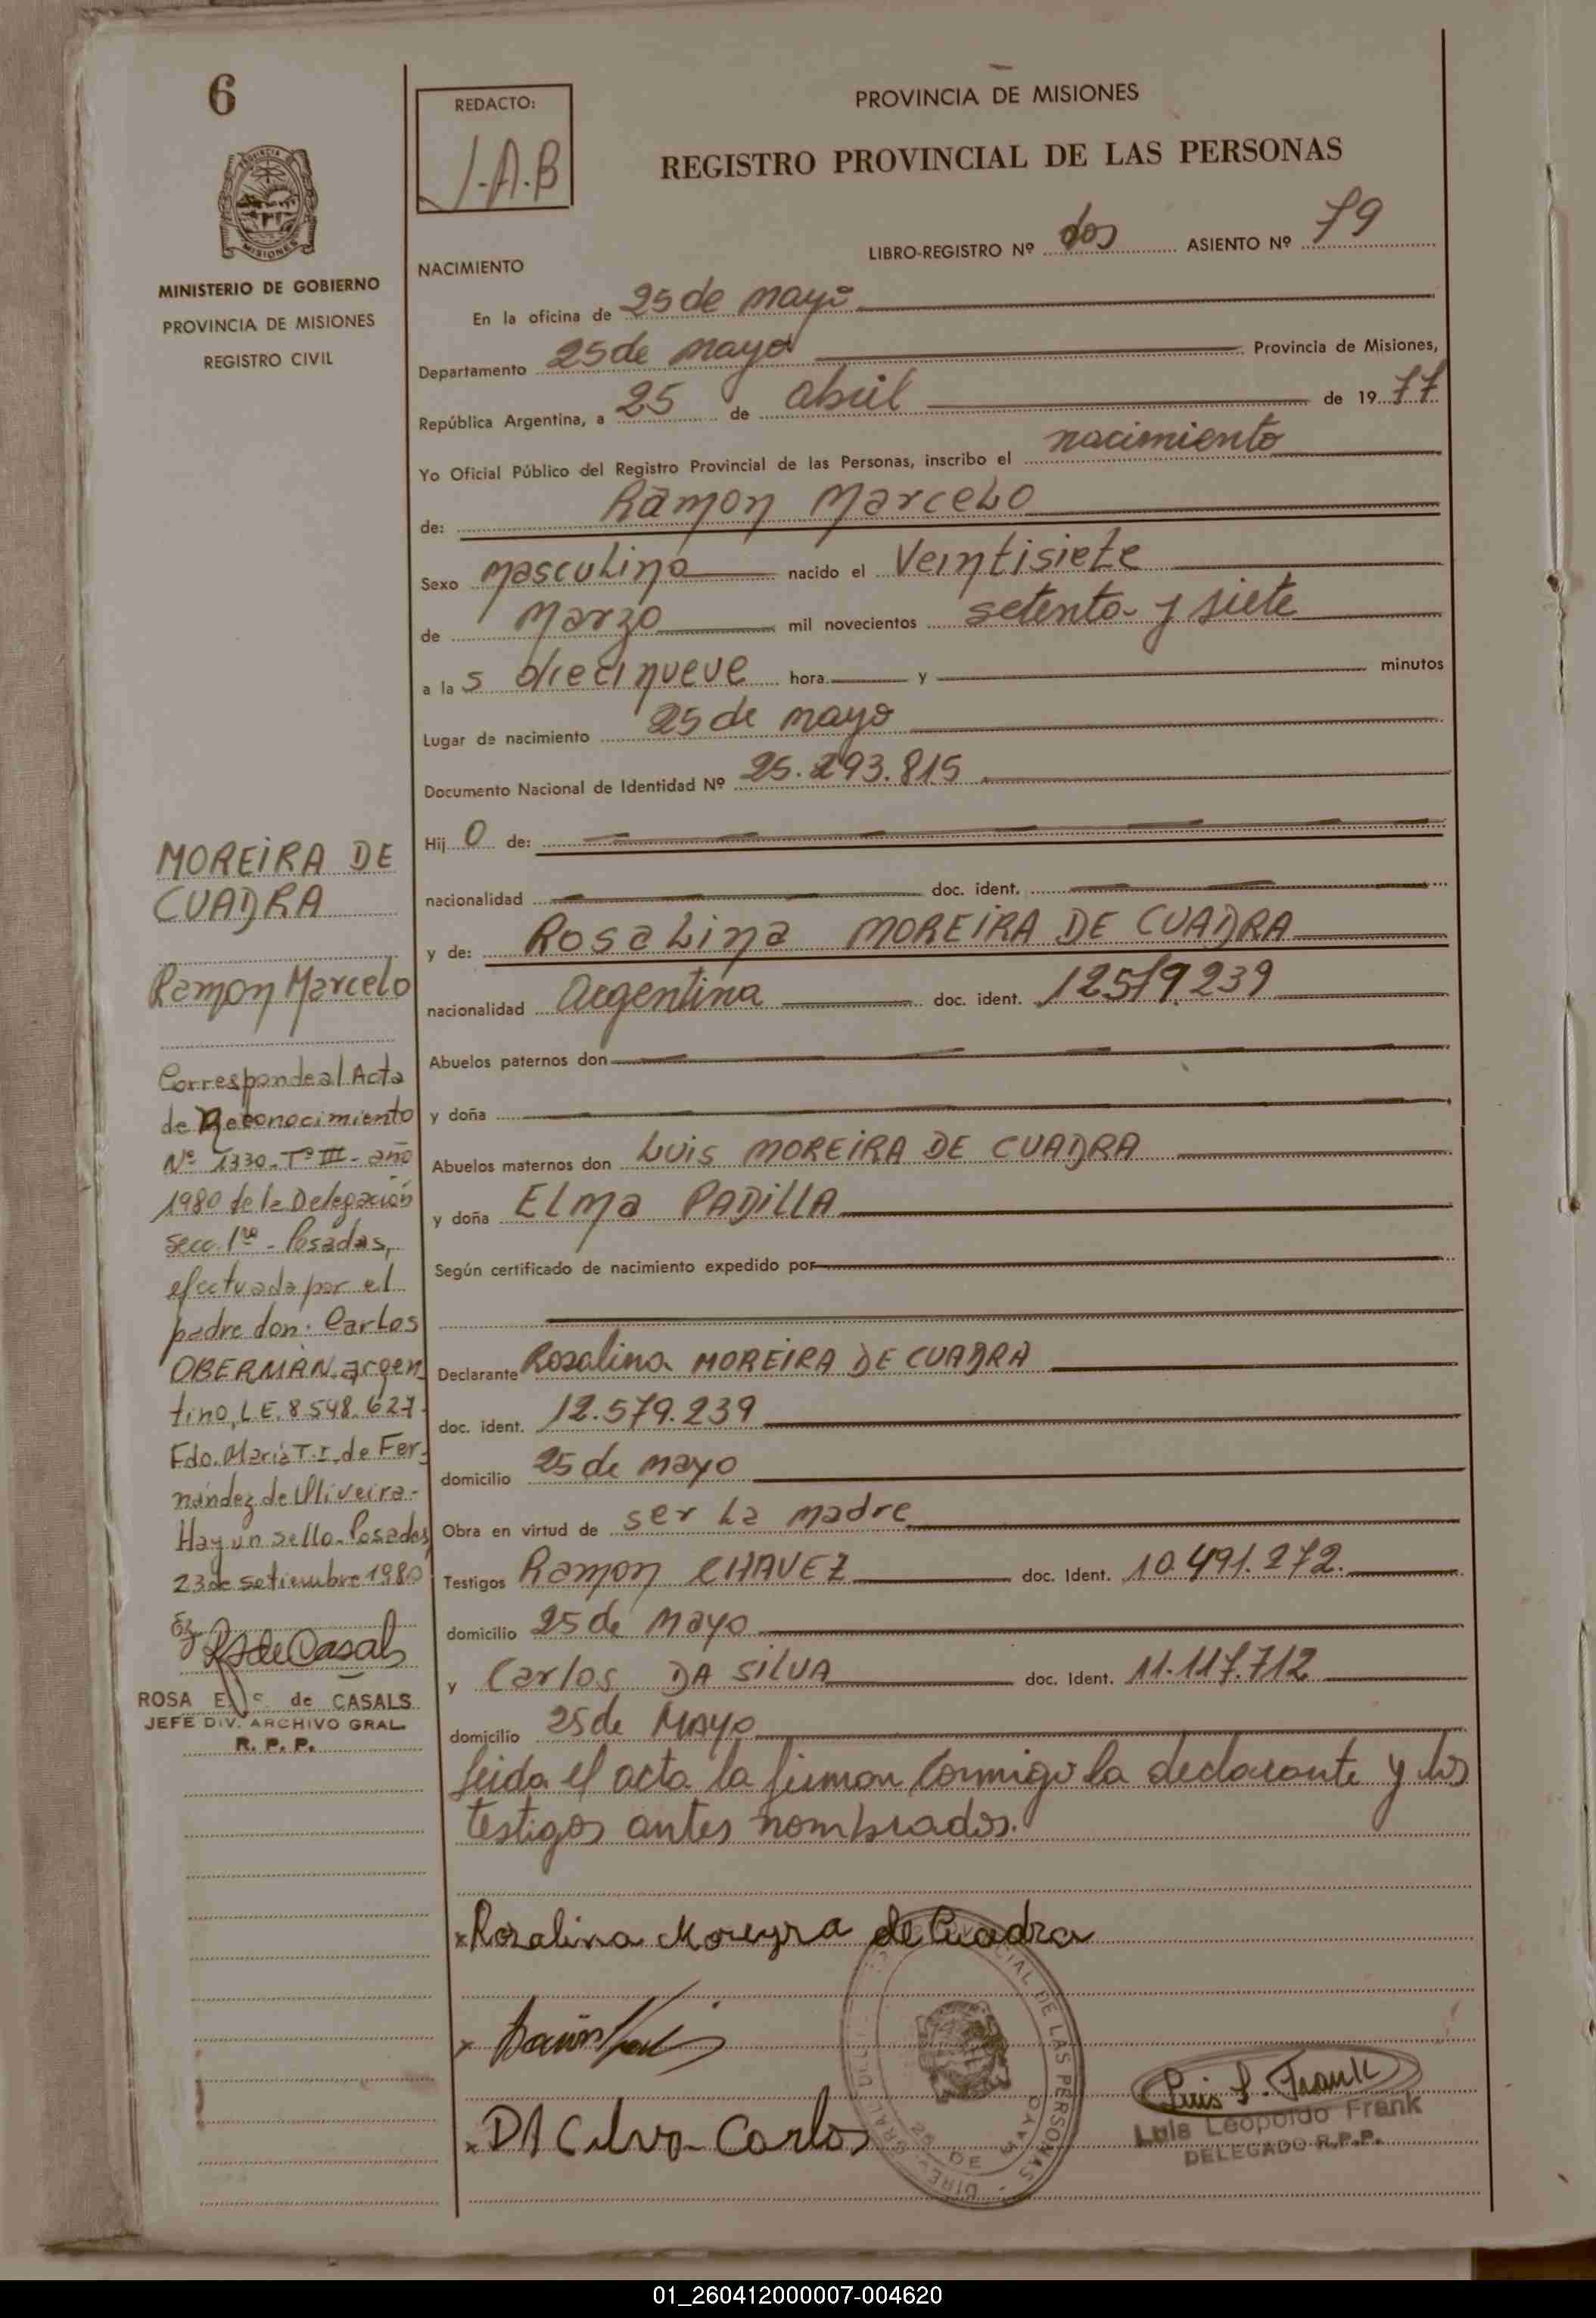 6
REDACTO:
J.A.B
PROVINCIA DE MISIONES
REGISTRO PROVINCIAL DE LAS PERSONAS
LIBRO-REGISTRO Nº dos ASIENTO Nº 79
MISIONES
MINISTERIO DE GOBIERNO
PROVINCIA DE MISIONES
REGISTRO CIVIL
NACIMIENTO
En la oficina de 25 de mayo
Departamento 25 de mayo Provincia de Misiones,
República Argentina, a 25 de abril de 1977
Yo Oficial Público del Registro Provincial de las Personas, inscribo el nacimiento
de: Ramon Marcelo
Sexo masculino nacido el Veintisiete
de Marzo mil novecientos setenta y siete
a las diecinueve hora y minutos
Lugar de nacimiento 25 de mayo
Documento Nacional de Identidad Nº 25.293.815
Hijo de:
nacionalidad doc. ident.
y de: Rosalina MOREIRA DE CUADRA
nacionalidad Argentina doc. ident. 12579239
Abuelos paternos don
y doña
Abuelos maternos don Luis MOREIRA DE CUADRA
y doña ELma PADILLA
Según certificado de nacimiento expedido por
Declarante Rosalina MOREIRA DE CUADRA
doc. ident. 12.579.239
domicilio 25 de mayo
Obra en virtud de ser la madre
Testigos Ramon CHAVEZ doc. Ident. 10.491.272.
domicilio 25 de Mayo
y Carlos DA SILVA doc. Ident. 11.117.712
domicilio 25 de Mayo
Leida el acta la firman conmigo la declarante y los
testigos antes nombrados.
MOREIRA DE
CUADRA
Ramon Marcelo
Corresponde al Acta
de Reconocimiento
Nº 1330-Tº III-año
1980 de la Delegación
secc. 1ra - Posadas,
efectuada por el
padre don: Carlos
OBERMAN, argen
tino, L.E. 8.548.627.
Fdo. María T. I. de Fer-
nández de Oliveira-
Hay un sello-Posadas,
23 de setiembre 1980
R de Casals
ROSA E. de CASALS
JEFE DIV. ARCHIVO GRAL.
R. P. P.
x Rosalina Moreyra de Cuadra
x
x DA Cilva Carlos
DE LAS PERSONAS
25 DE MAYO
Luis L. Frank
Luis Leopoldo Frank
DELEGADO R.P.P.
01_260412000007-004620